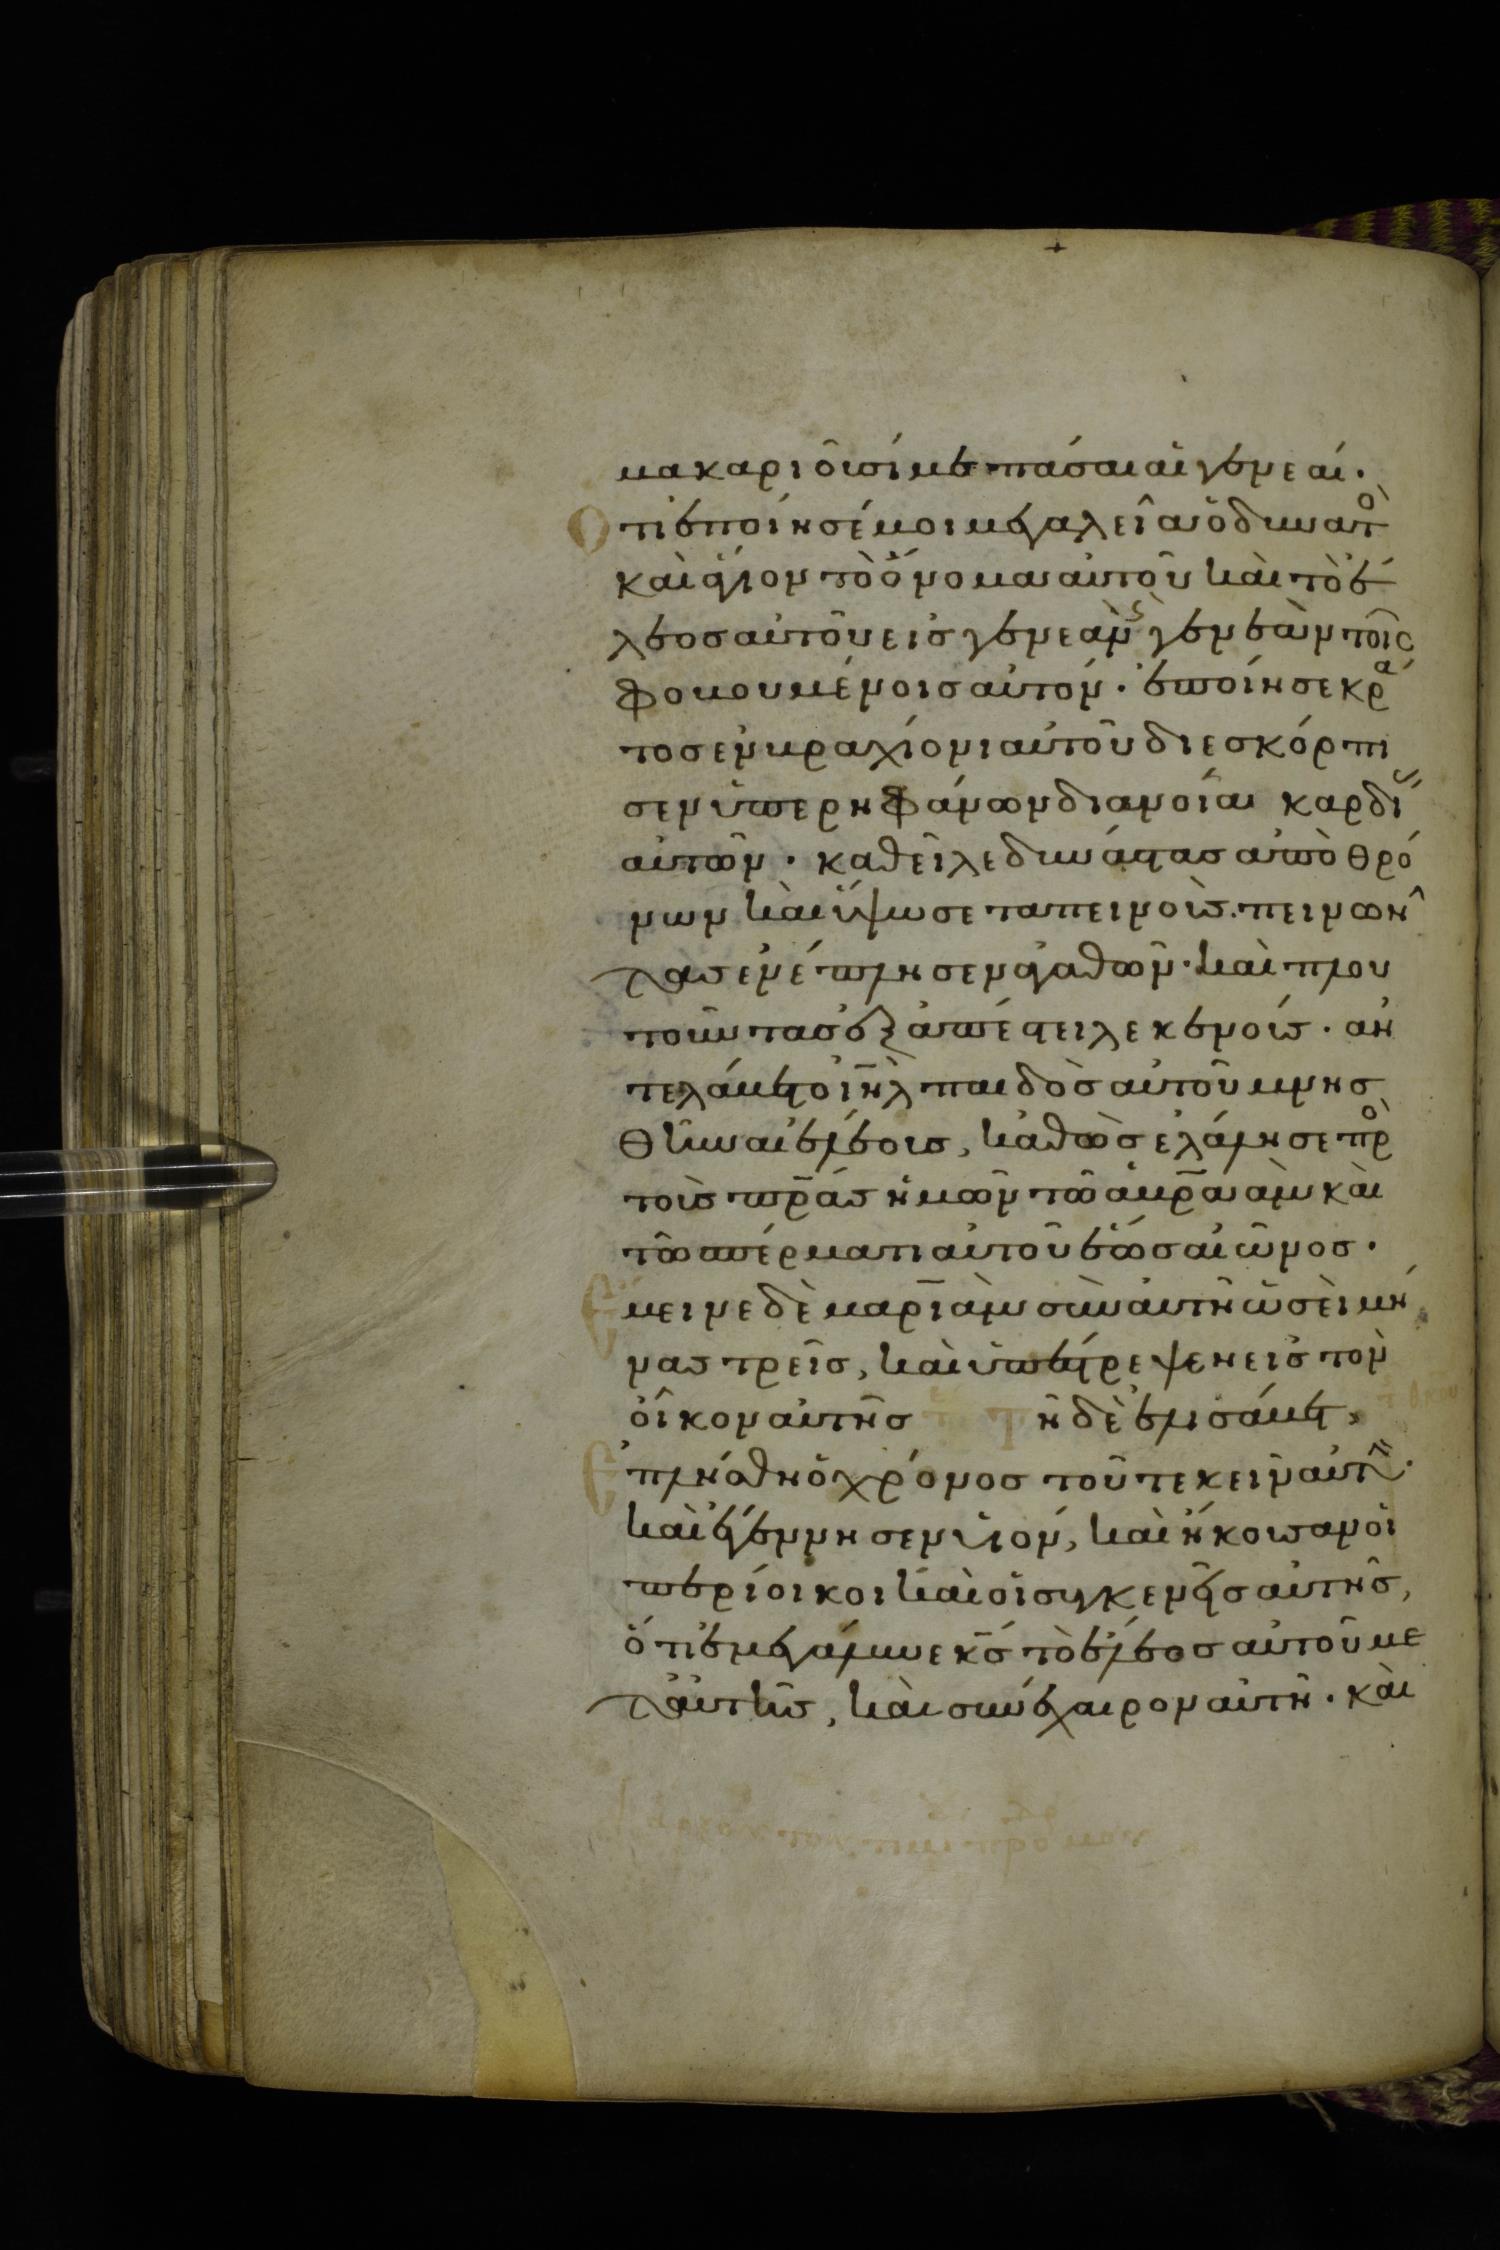 μακαριοῦσί με πάσαι αἱ γενεαί.
Ὅτι ἐποίησέ μοι μεγαλεῖα ὁ δυνατὸ
καὶ ἅγιον τὸ ὄνομα αὐτοῦ καὶ τὸ ἔ
λεος αὐτοῦ εἰς γενεὰν ϛ γενεὰν τοῖς
φοβουμένοις αὐτόν. ἐποίησε κρά
τος ἐν βραχίονι αὐτοῦ διεσκόρπι
σεν ὑπερηφάνων διανοίαι καρδι
αὐτῶν. καθεῖλε δυνάστας ἀπὸ θρό
νων καὶ ὕψωσε ταπεινούς. πεινῶν
τας ἐνέπλησεν ἀγαθῶν. καὶ πλου
τοῦντας ἐξαπέστειλε κενούς. ἀν
τελάβετο ιῆλ παιδὸς αὐτοῦ μνησ
θῆναι ἐλέους, καθὼς ἐλάλησε πρὸ
τοὺς πρ̅ας ἡμῶν τῶ ἀβρααὰμ καὶ
τῶ σπέρματι αὐτοῦ ἕως αἰῶνος.
Ἔμεινε δὲ μαριὰμ σὺν αὐτῆ ὡσεὶ μῆ
νας τρεῖς, καὶ ὑπέστρεψεν εἰς τὸν
οἶκον αὐτῆς Τῆ δὲ ἐλισάβετ,
Ἐπλήσθη ὁ χρόνος τοῦ τεκεῖν αὐτὴν.
καὶ ἐγέννησεν υἱόν, καὶ ἤκουσαν οἱ
περίοικοι καὶ οἱ συγκενεῖς αὐτῆς,
ὅτι ἐμεγάλυνε κ̅ς τὸ ἔλεος αὐτοῦ με
τ' αὐτῆς, καὶ συνέχαιρον αὐτῆ. καὶ